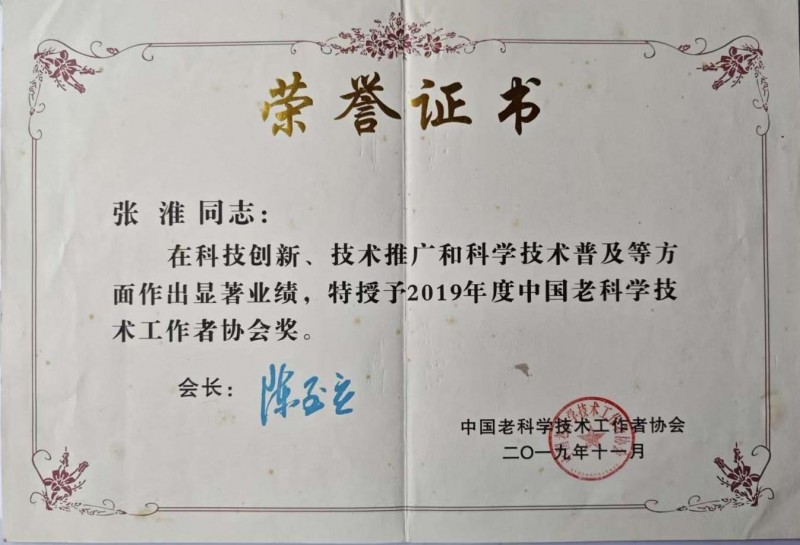 荣誉证书
张 淮 同志：
在科技创新、技术推广和科学技术普及等方
面作出显著业绩，特授予2019年度中国老科学技
术工作者协会奖。
会长：陈至立
中国老科学技术工作者协会
二〇一九年十一月